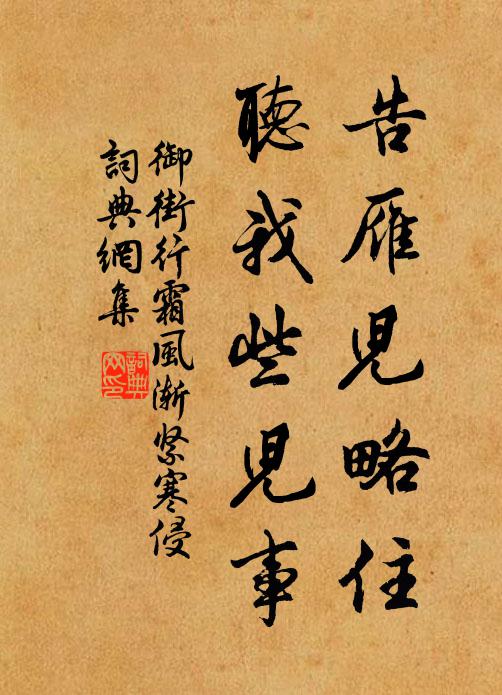 告雁兒略住
聽我些兒事
御街行霜風漸緊寒侵
詞典網集
詞典
网印